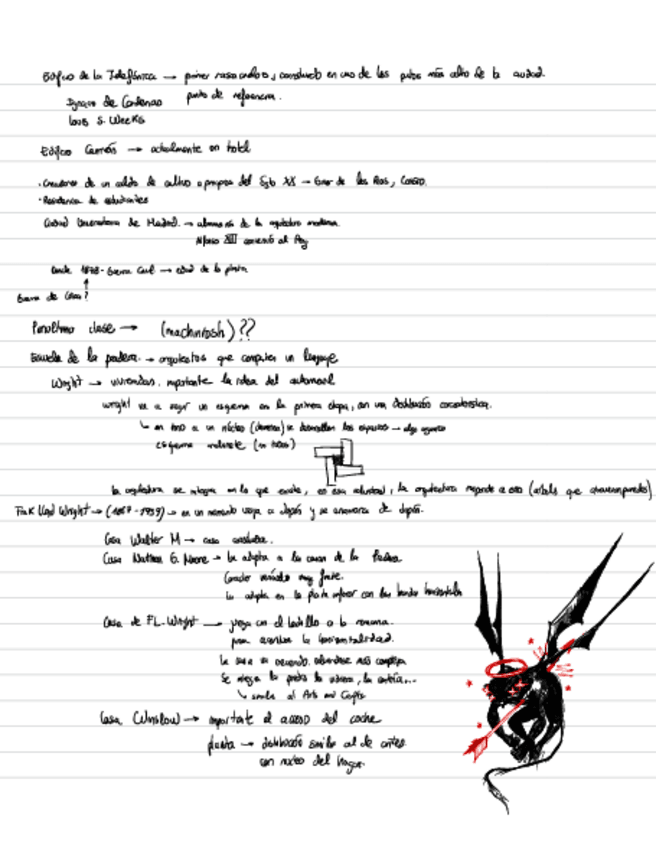 Edificio de la Telefónica → primer rascacielos, construido en uno de los puntos más altos de la ciudad.
Ignacio de Cárdenas punto de referencia.
Louis S. Weeks
Edificio → actualmente un hotel
· Creadores de un caldo de cultivo a propos del Siglo XX → Giner de los Ríos, Cossío.
· Residencia de estudiantes
Ciudad Universitaria de Madrid. → de la arquitectura moderna.
Alfonso XIII al
Desde 1898 - Guerra Civil → edad de la plata
Guerra de Cuba?
Penúltima clase → (machintosh) ??
Escuela de la pradera. → arquitectos que comparten un lenguaje
Wright → viviendas, importante la idea del automovil
wright va a seguir un esquema en la primera etapa, con una distribución característica.
↳ en torno a un núcleo (chimenea) se desarrollan los espacios → algo
esquema molinete (en todas)
la arquitectura se integra en lo que existe, , la arquitectura responde a eso (árboles que atraviesan paredes)
Frank Lloyd Wright → (1867 - 1959) → en un momento viaja a Japón y se enamora de Japón.
Casa Walter M → casa
Casa Nathan G. Moore → la adapta a las casas de la Pradera
Carácter muy fuerte.
la adapta en la parte inferior con las bandas horizontales
Casa de FL. Wright → juega con el ladrillo a la romana.
para acentuar la horizontalidad.
la casa va creciendo, más compleja
Se niega la puerta la vidriera, la
↳ similar al Arts and Crafts
Casa Winslow → importante el acceso del coche
planta → distribución similar al de antes
con núcleo del hogar.